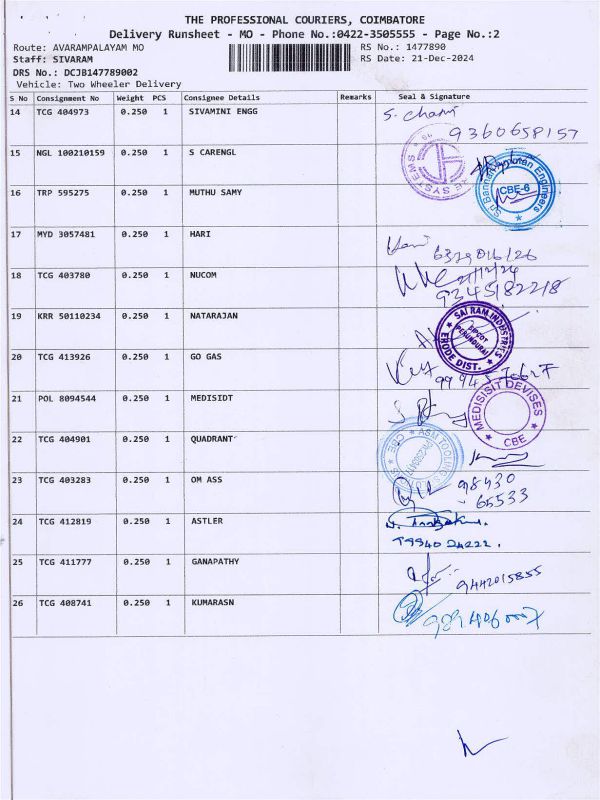 THE PROFESSIONAL COURIERS, COIMBATORE
Delivery Runsheet - MO - Phone No.:0422-3505555 - Page No.:2
Route: AVARAMPALAYAM MO
Staff: SIVARAM
DRS No.: DCJB147789002
Vehicle: Two Wheeler Delivery
RS No.: 1477890
RS Date: 21-Dec-2024
S No Consignment No Weight PCS Consignee Details Remarks Seal & Signature
14 TCG 404973 0.250 1 SIVAMINI ENGG
9360658157
15 NGL 100210159 0.250 1 S CARENGL
SYSTEMS
16 TRP 595275 0.250 1 MUTHU SAMY
Engineers
CBE-6
17 MYD 3057481 0.250 1 HARI
18 TCG 403780 0.250 1 NUCOM
9345182218
19 KRR 50110234 0.250 1 NATARAJAN
SAI RAM INDUSTRIES
ERODE DIST.
20 TCG 413926 0.250 1 GO GAS
21 POL 8094544 0.250 1 MEDISIDT
MEDISISIT DEVISES
CBE
22 TCG 404901 0.250 1 QUADRANT
CBE
23 TCG 403283 0.250 1 OM ASS
98430
65533
24 TCG 412819 0.250 1 ASTLER
25 TCG 411777 0.250 1 GANAPATHY
9442015855
26 TCG 408741 0.250 1 KUMARASN